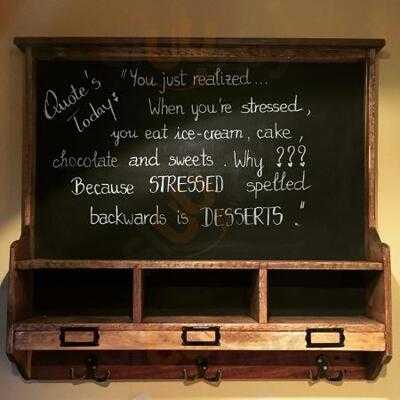 Quote's Today:
"You just realized...
When you're stressed,
you eat ice-cream, cake,
chocolate and sweets. Why ???
Because STRESSED spelled
backwards is DESSERTS."